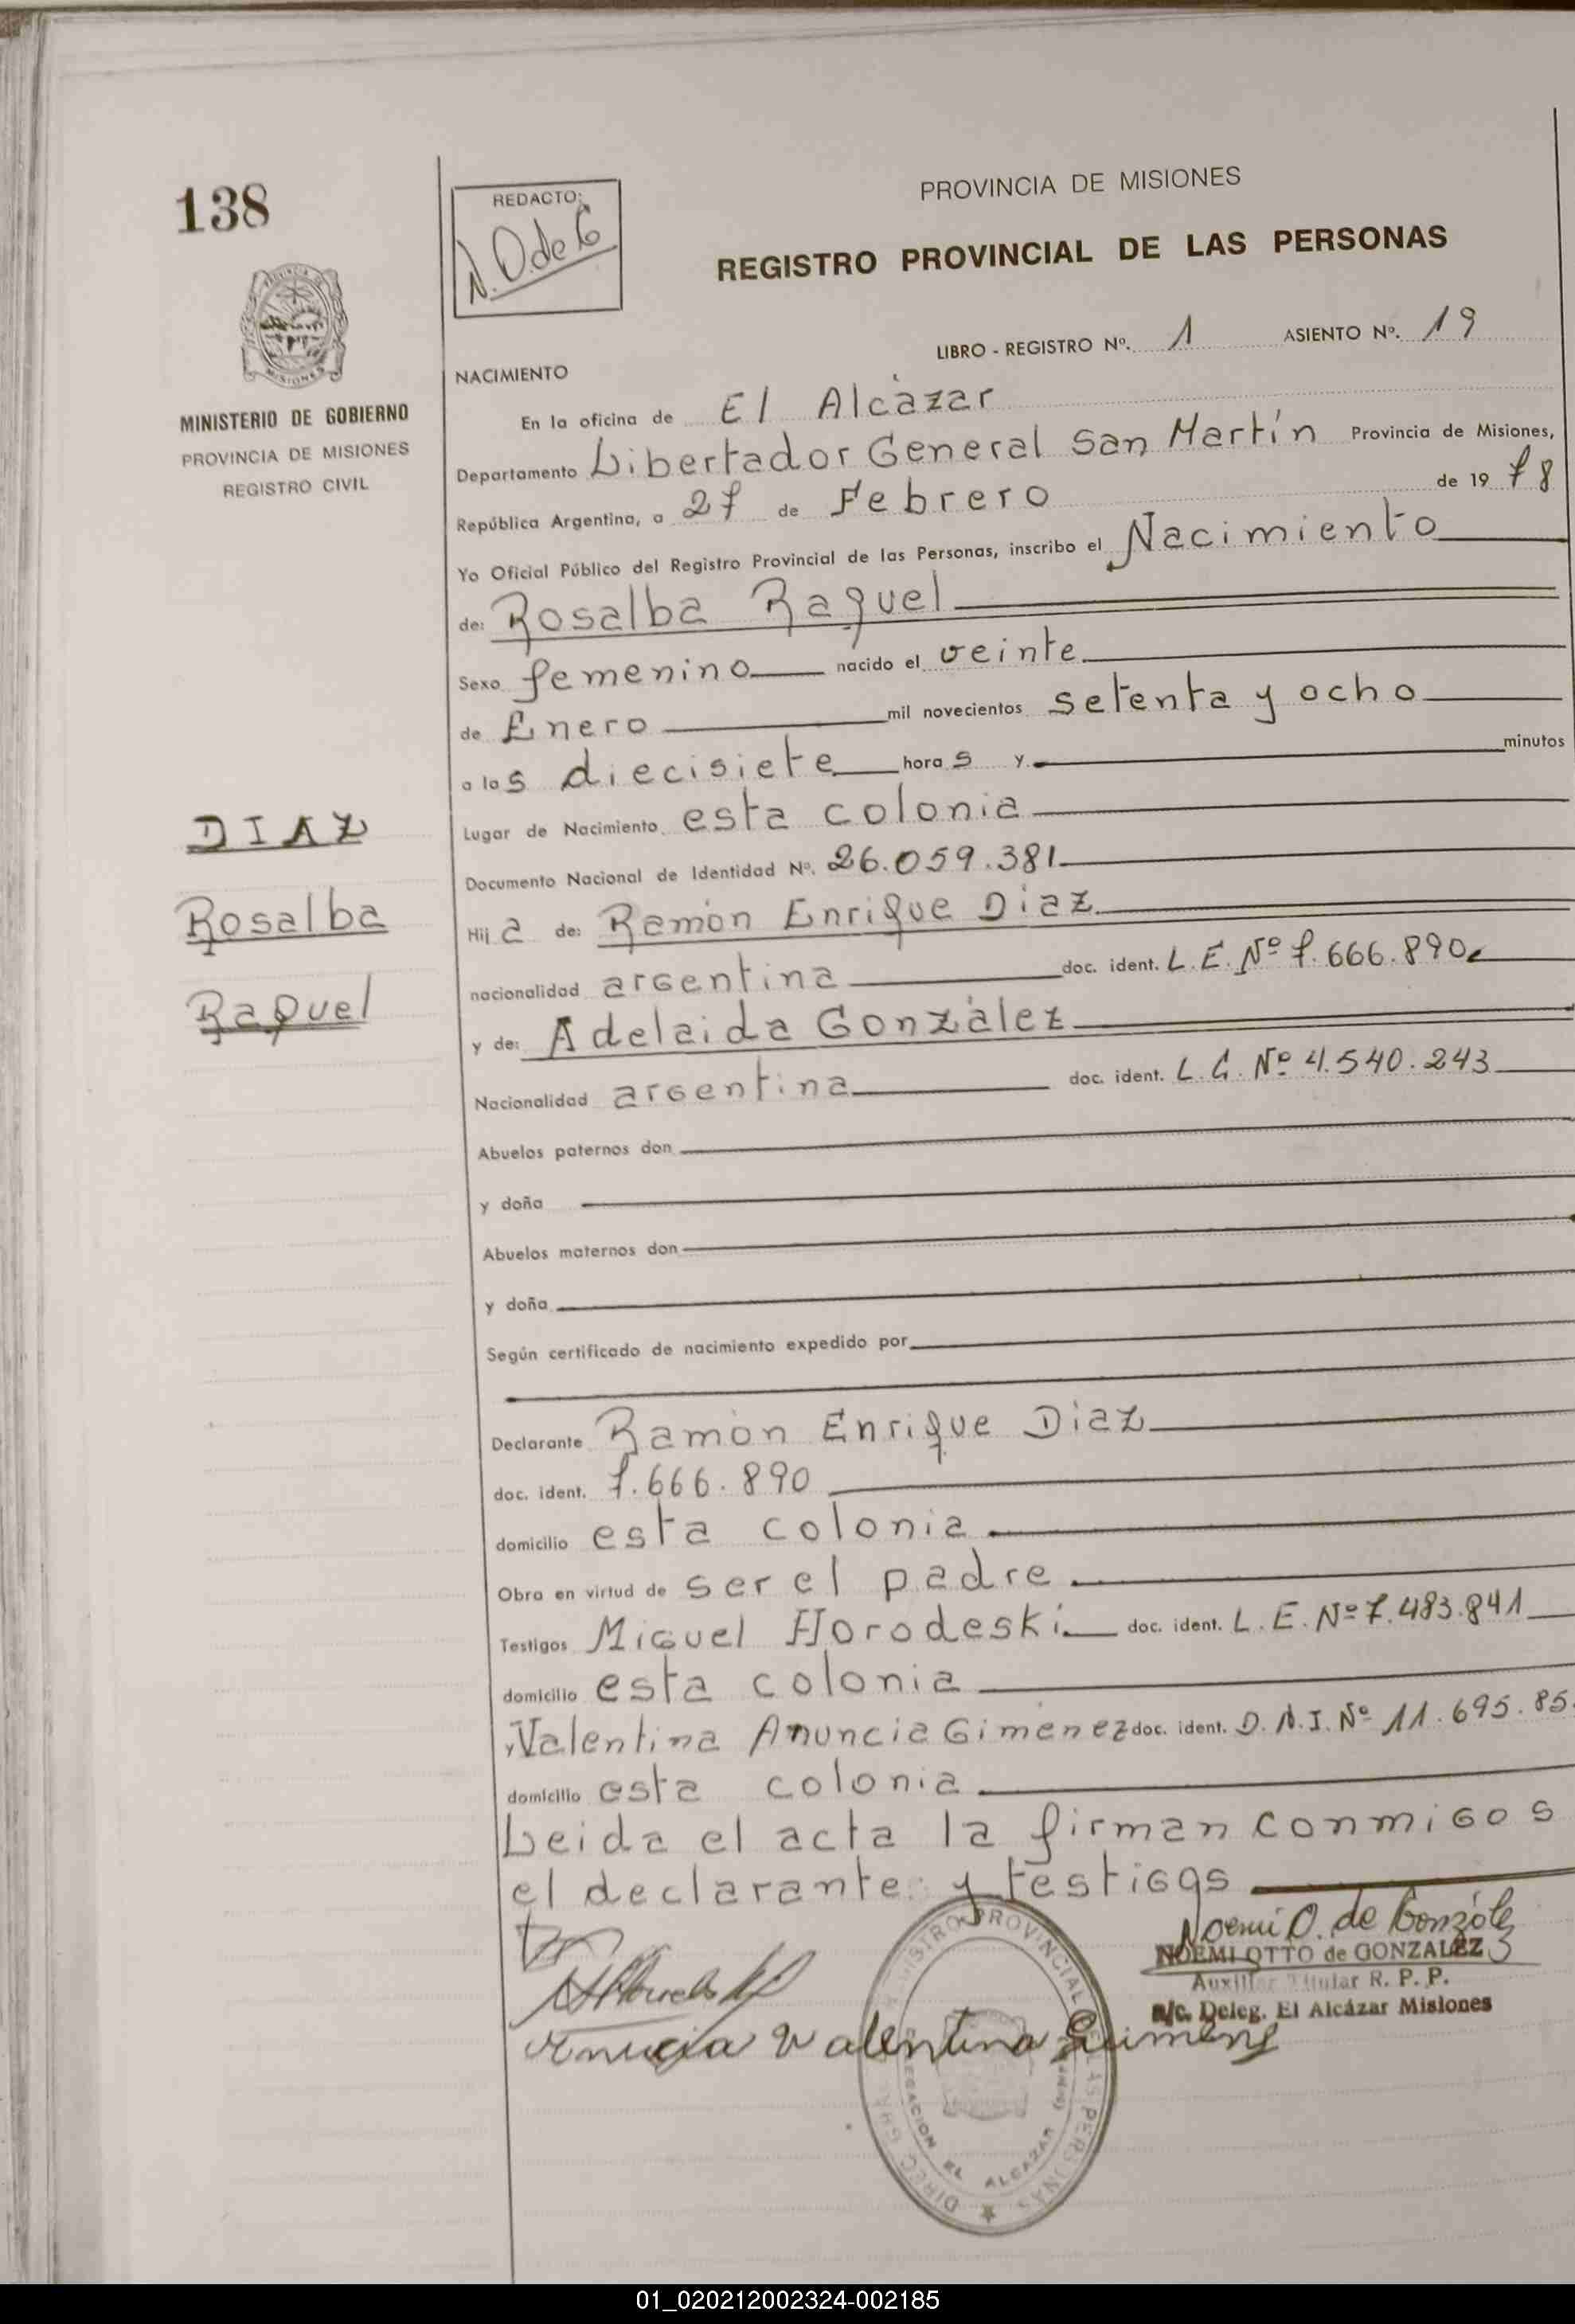 138
REDACTO:
N. O. de G
PROVINCIA DE MISIONES
REGISTRO PROVINCIAL DE LAS PERSONAS
MISIONES
MINISTERIO DE GOBIERNO
PROVINCIA DE MISIONES
REGISTRO CIVIL
LIBRO - REGISTRO Nº. 1 ASIENTO Nº. 19
NACIMIENTO
En la oficina de El Alcàzar
Departamento Libertador General San Martín Provincia de Misiones,
República Argentina, a 27 de Febrero de 1978
Yo Oficial Público del Registro Provincial de las Personas, inscribo el Nacimiento
de: Rosalba Raquel
Sexo femenino nacido el veinte
de Enero mil novecientos setenta y ocho
a las diecisiete horas y minutos
Lugar de Nacimiento esta colonia
Documento Nacional de Identidad Nº. 26.059.381
DIAZ
Rosalba
Raquel
Hija de: Ramòn Enrique Diaz
nacionalidad argentina doc. ident. L.E. Nº 7.666.890
y de: Adelaida Gonzàlez
Nacionalidad argentina doc. ident. L.C. Nº 4.540.243
Abuelos paternos don
y doña
Abuelos maternos don
y doña
Según certificado de nacimiento expedido por
Declarante Ramòn Enrique Diaz
doc. ident. 7.666.890
domicilio esta colonia
Obra en virtud de ser el padre
Testigos Miguel Horodeski doc. ident. L.E. Nº 7.483.841
domicilio esta colonia
Valentina Anuncia Gimenez doc. ident. D.N.I. Nº 11.695.85
domicilio esta colonia
Leida el acta la firman conmigos
el declarante y testigos
Noemi O. de Gonzàlez
NOEMI OTTO de GONZALEZ
Auxiliar Titular R. P. P.
a/c. Deleg. El Alcázar Misiones
Anuncia Valentina Guimenez
DIREC. GRAL. REGISTRO PROVINCIAL DE LAS PERSONAS
DELEGACION EL ALCAZAR
01_020212002324-002185